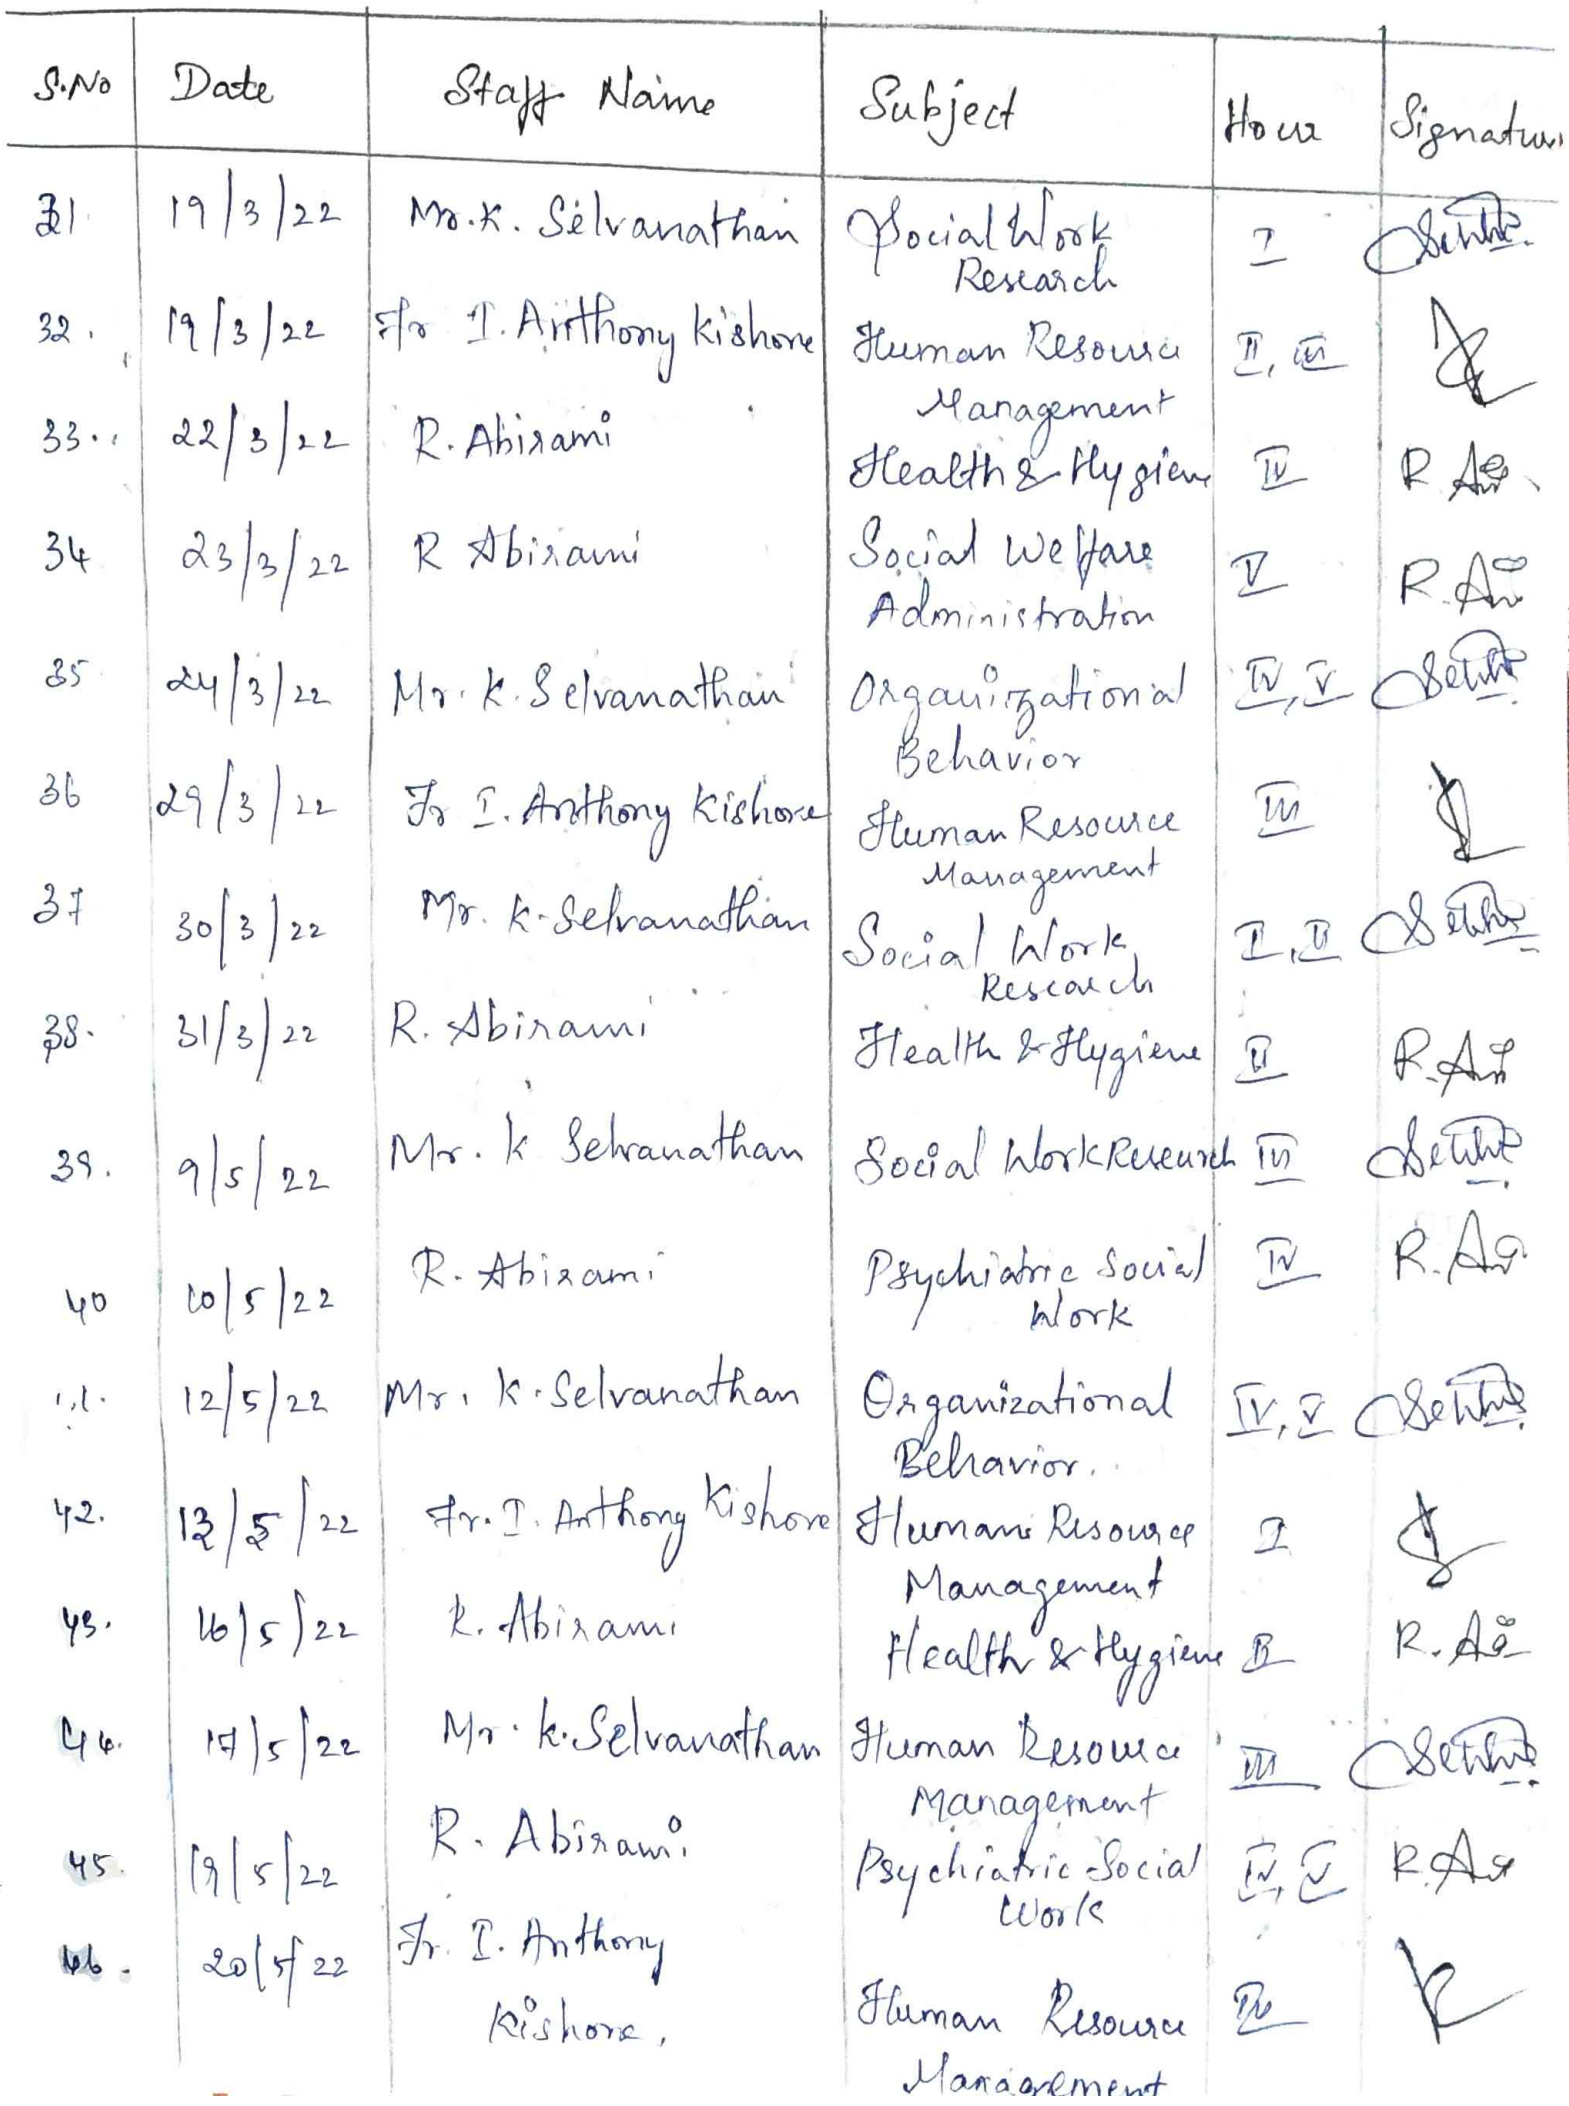 S.No Date Staff Name Subject Hour Signature
31. 19/3/22 Mr. K. Selvanathan Social Work I
Research
32. 19/3/22 Fr I. Anthony Kishore Human Resource II, III
Management
33. 22/3/22 R. Abirami Health & Hygiene IV R
34 23/3/22 R Abirami Social Welfare V R.
Administration
35 24/3/22 Mr. K. Selvanathan Organizational IV, V
Behavior
36 29/3/22 Fr I. Anthony Kishore Human Resource III
Management
37 30/3/22 Mr. K. Selvanathan Social Work I, II
Research
38. 31/3/22 R. Abirami Health & Hygiene II R.
39. 9/5/22 Mr. K Selvanathan Social Work Research III
40 10/5/22 R. Abirami Psychiatric Social IV R.
Work
12/5/22 Mr. K. Selvanathan Organizational IV, V
Behavior.
42. 13/5/22 Fr. I. Anthony Kishore Human Resource I
Management
43. 16/5/22 R. Abirami Health & Hygiene II R.
44. 17/5/22 Mr. K. Selvanathan Human Resource III
Management
45. 19/5/22 R. Abirami Psychiatric Social IV, V R.
Work
46. 20/5/22 Fr. I. Anthony
Kishore, Human Resource
Management